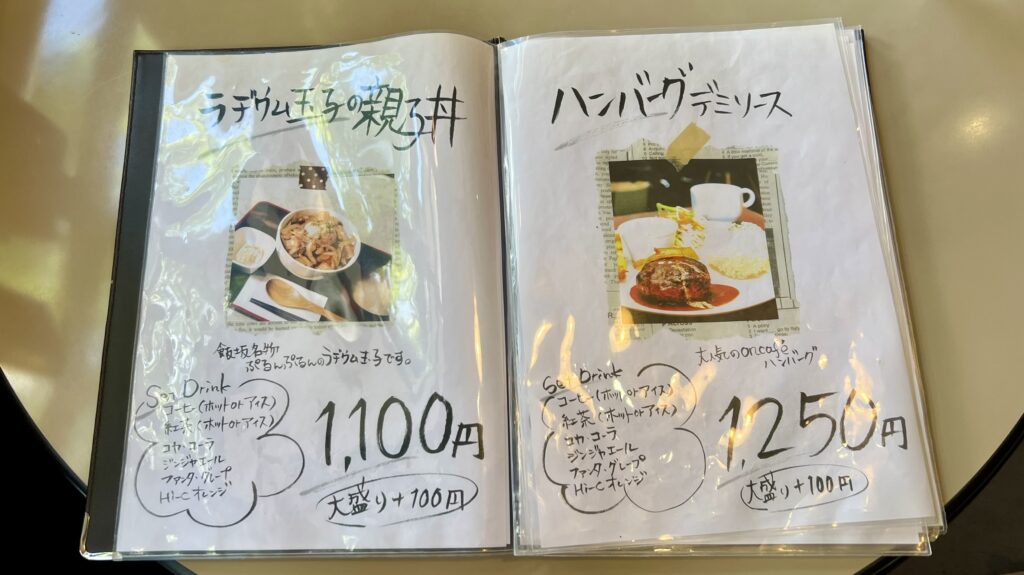 ラヂウム玉子の親子丼
飯坂名物
ぷるんぷるんのラヂウム玉子です。
Set Drink
コーヒー(ホット or アイス)
紅茶(ホット or アイス)
コカ・コーラ
ジンジャエール
ファンタ・グレープ
Hi-C オレンジ
1,100円
大盛り+100円
ハンバーグデミソース
大人気のoncafé
ハンバーグ
Set Drink
コーヒー(ホット or アイス)
紅茶(ホット or アイス)
コカ・コーラ
ジンジャエール
ファンタ・グレープ
Hi-C オレンジ
1,250円
大盛り+100円